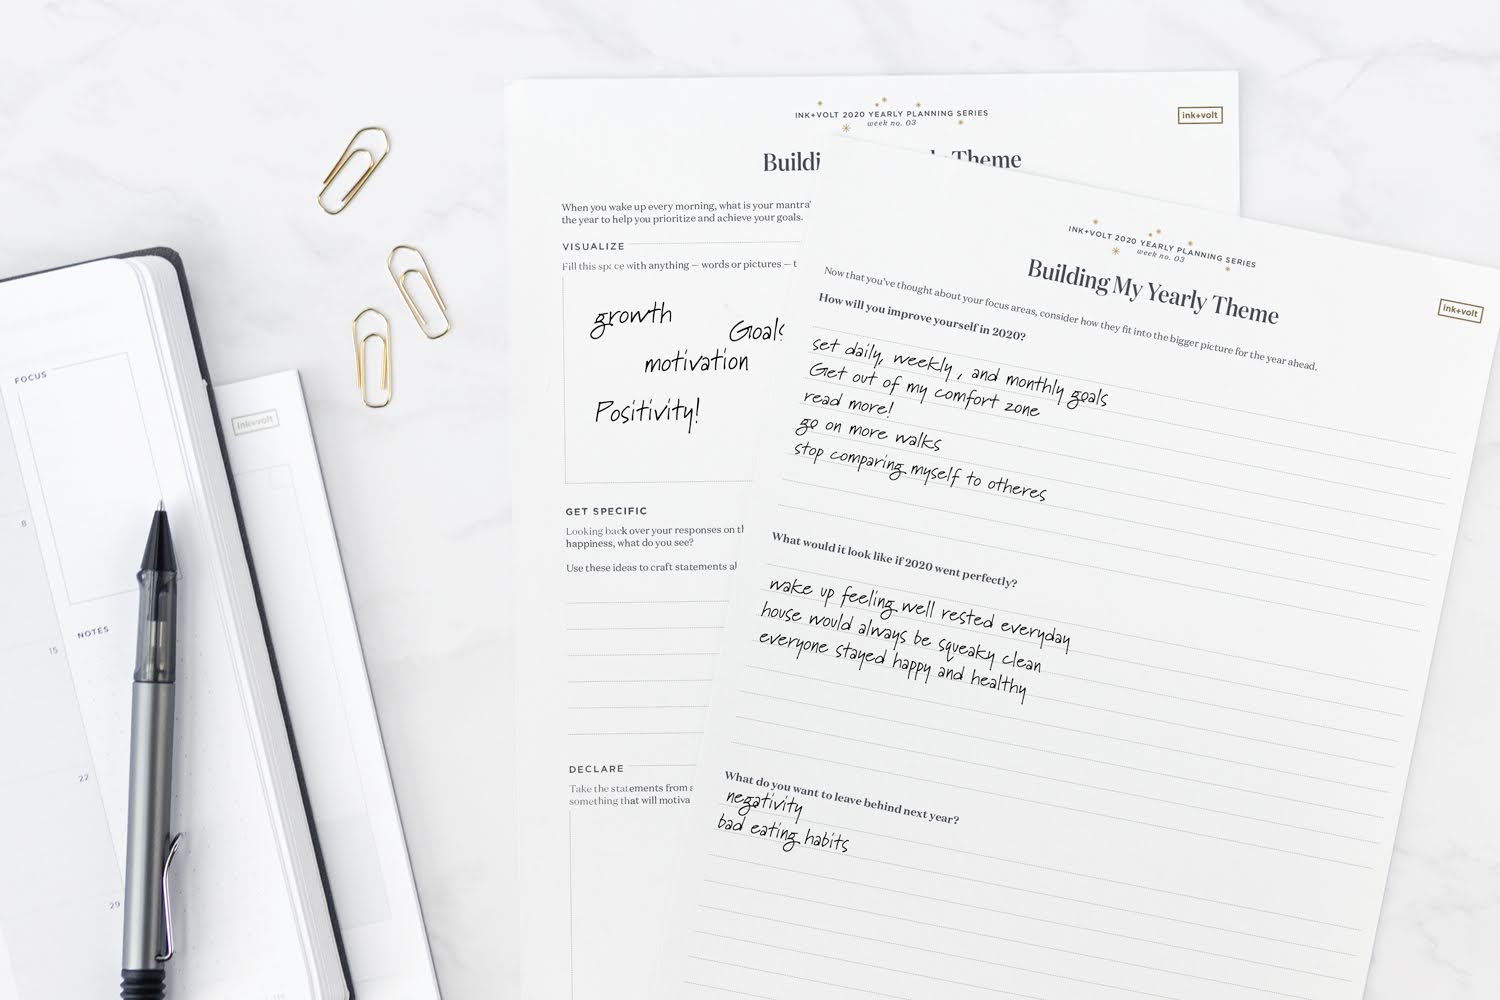 FOCUS
8
NOTES
15
22
29
ink+volt
INK+VOLT 2020 YEARLY PLANNING SERIES
week no. 03
ink+volt
Theme
When you wake up every morning, what is your mantra
the year to help you prioritize and achieve your goals.
VISUALIZE
Fill this space with anything — words or pictures —
growth
Goals
motivation
Positivity!
GET SPECIFIC
Looking back over your responses on
happiness, what do you see?
Use these ideas to craft statements
DECLARE
Take the statements from
something that will
INK+VOLT 2020 YEARLY PLANNING SERIES
week no. 03
ink+volt
Building My Yearly Theme
Now that you've thought about your focus areas, consider how they fit into the bigger picture for the year ahead.
How will you improve yourself in 2020?
set daily, weekly, and monthly goals
Get out of my comfort zone
read more!
go on more walks
stop comparing myself to otheres
What would it look like if 2020 went perfectly?
wake up feeling well rested everyday
house would always be squeaky clean
everyone stayed happy and healthy
What do you want to leave behind next year?
negativity
bad eating habits